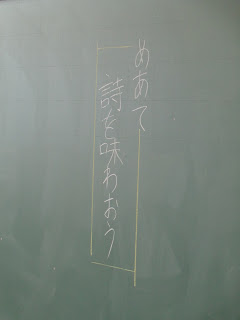 めあて
詩を味わおう